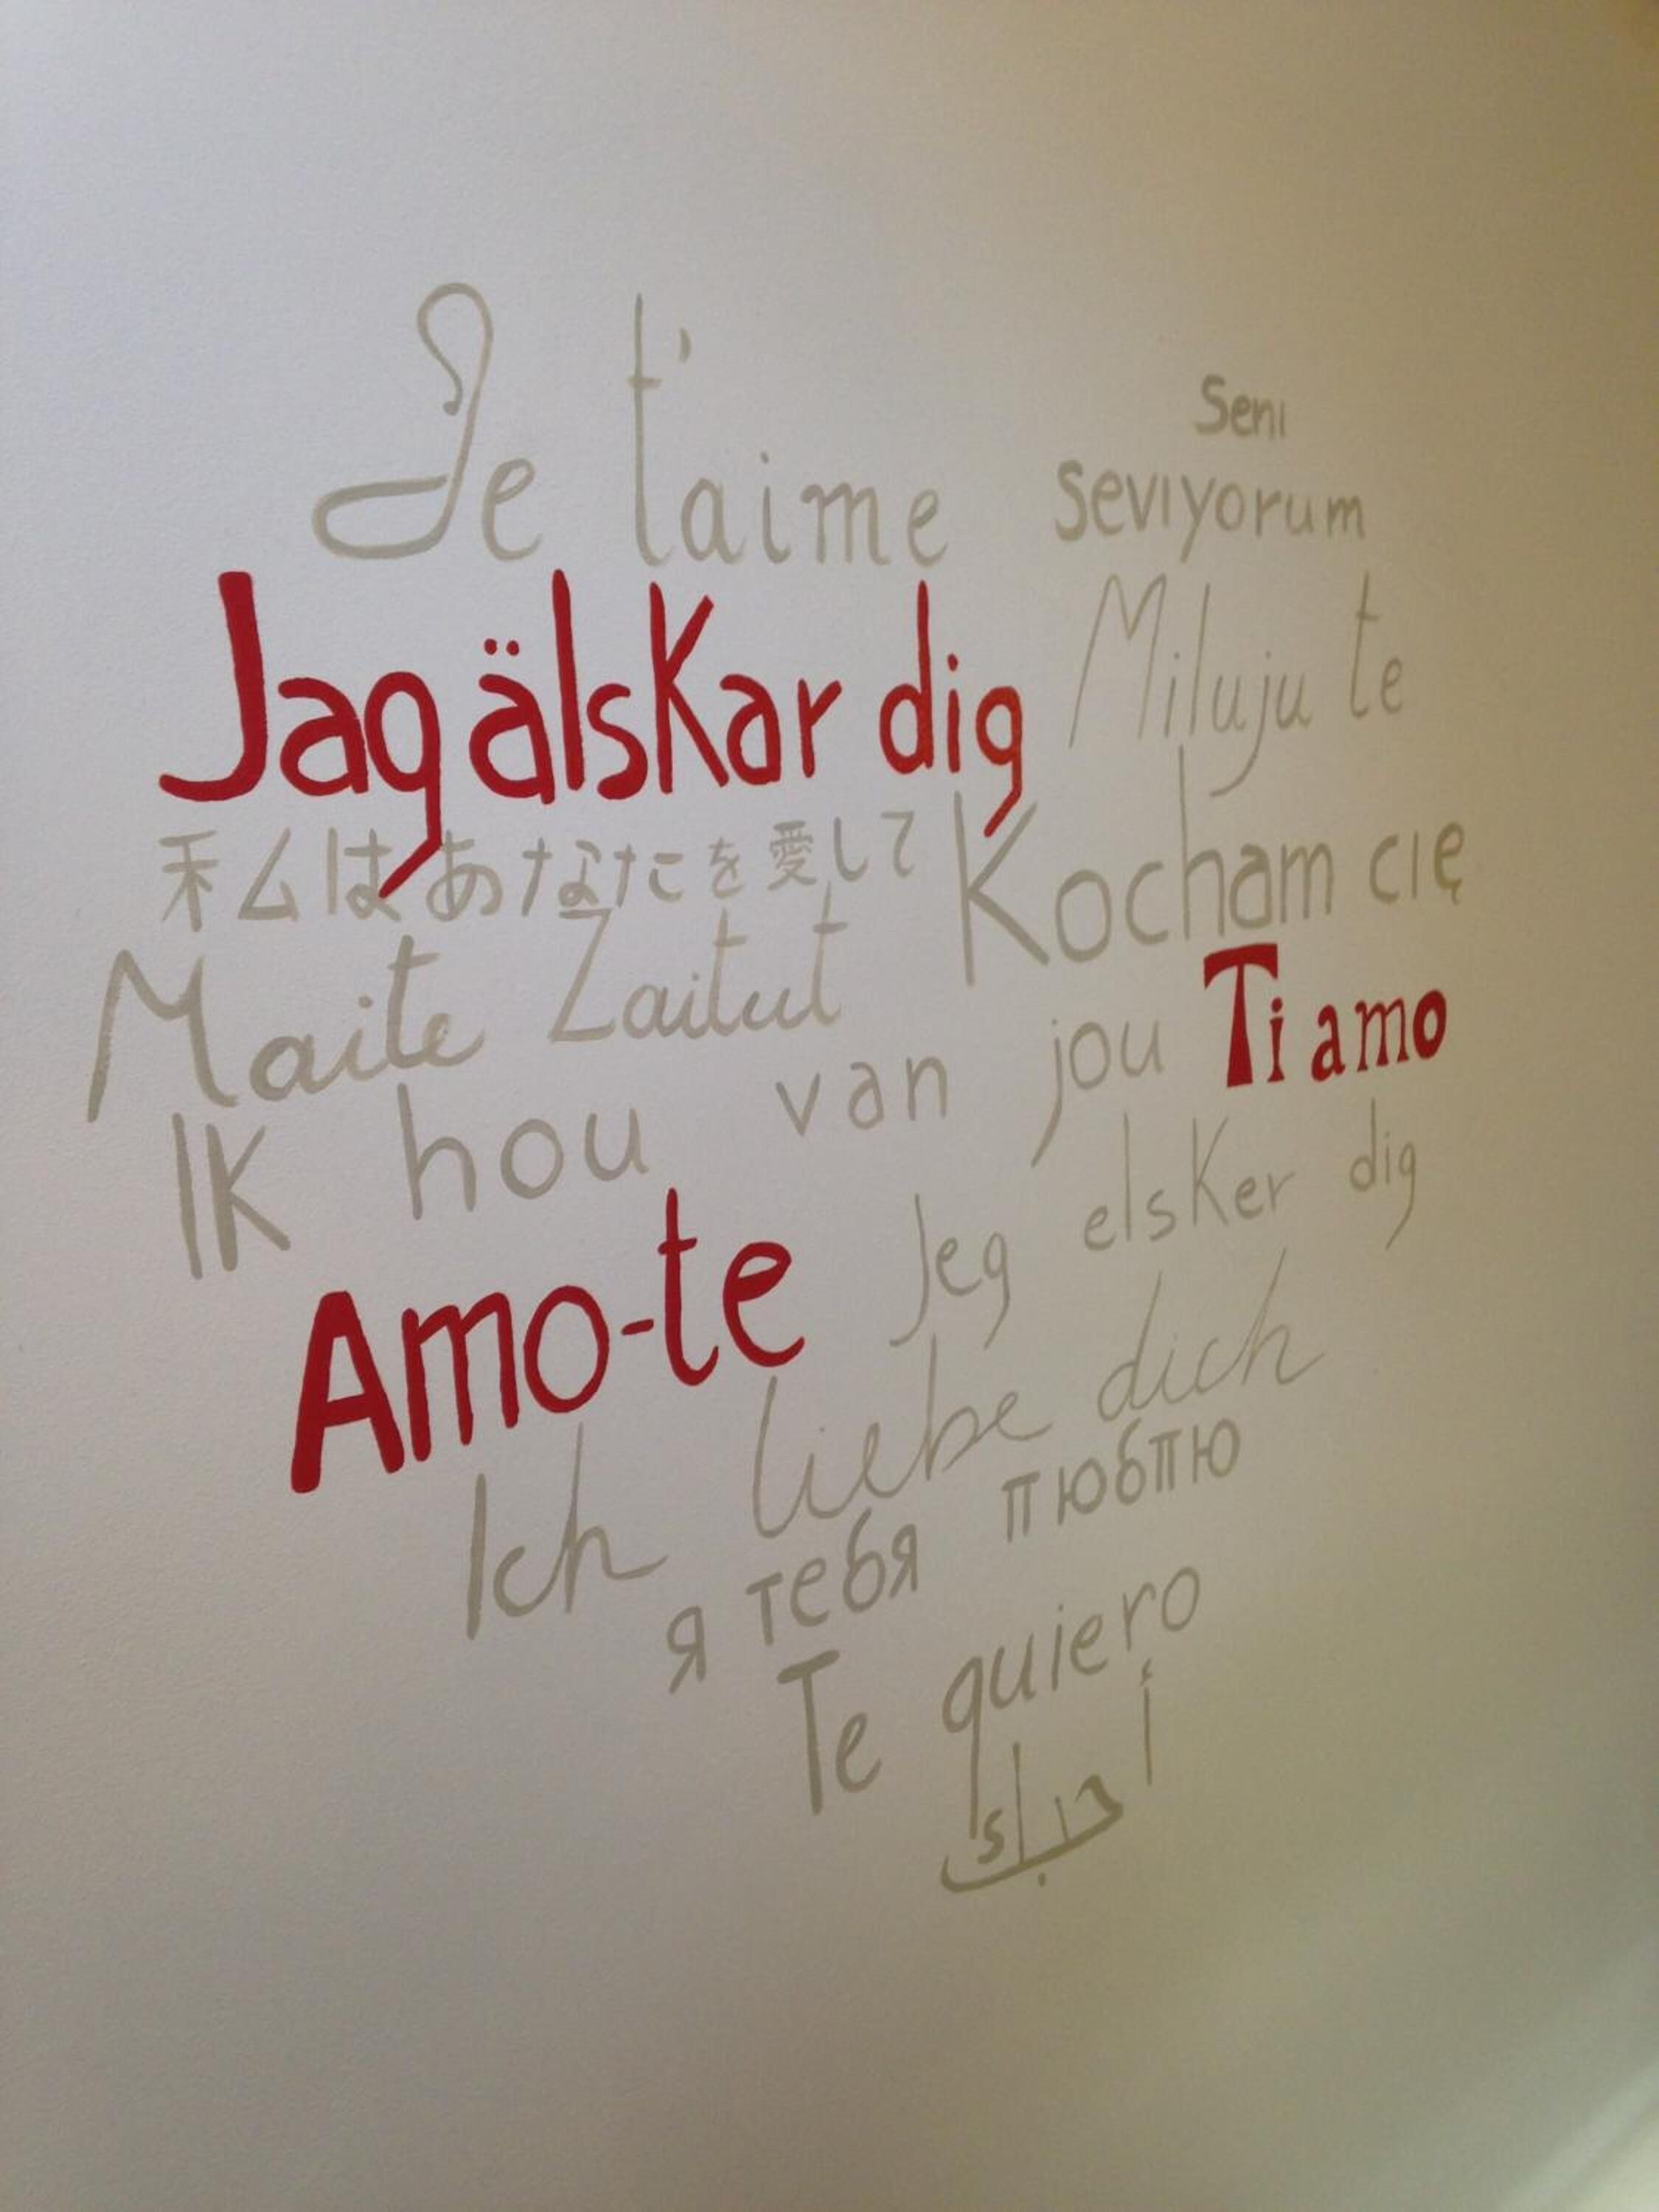 Je t'aime
Senı
sevıyorum
Jag älskar dig
Miluju te
私はあなたを愛して
Kocham cıę
Maite Zaitut
Ti amo
Ik hou van jou
Amo-te
Jeg elsker dig
Ich liebe dich
я тебя пюбпю
Te quiero
أحبك